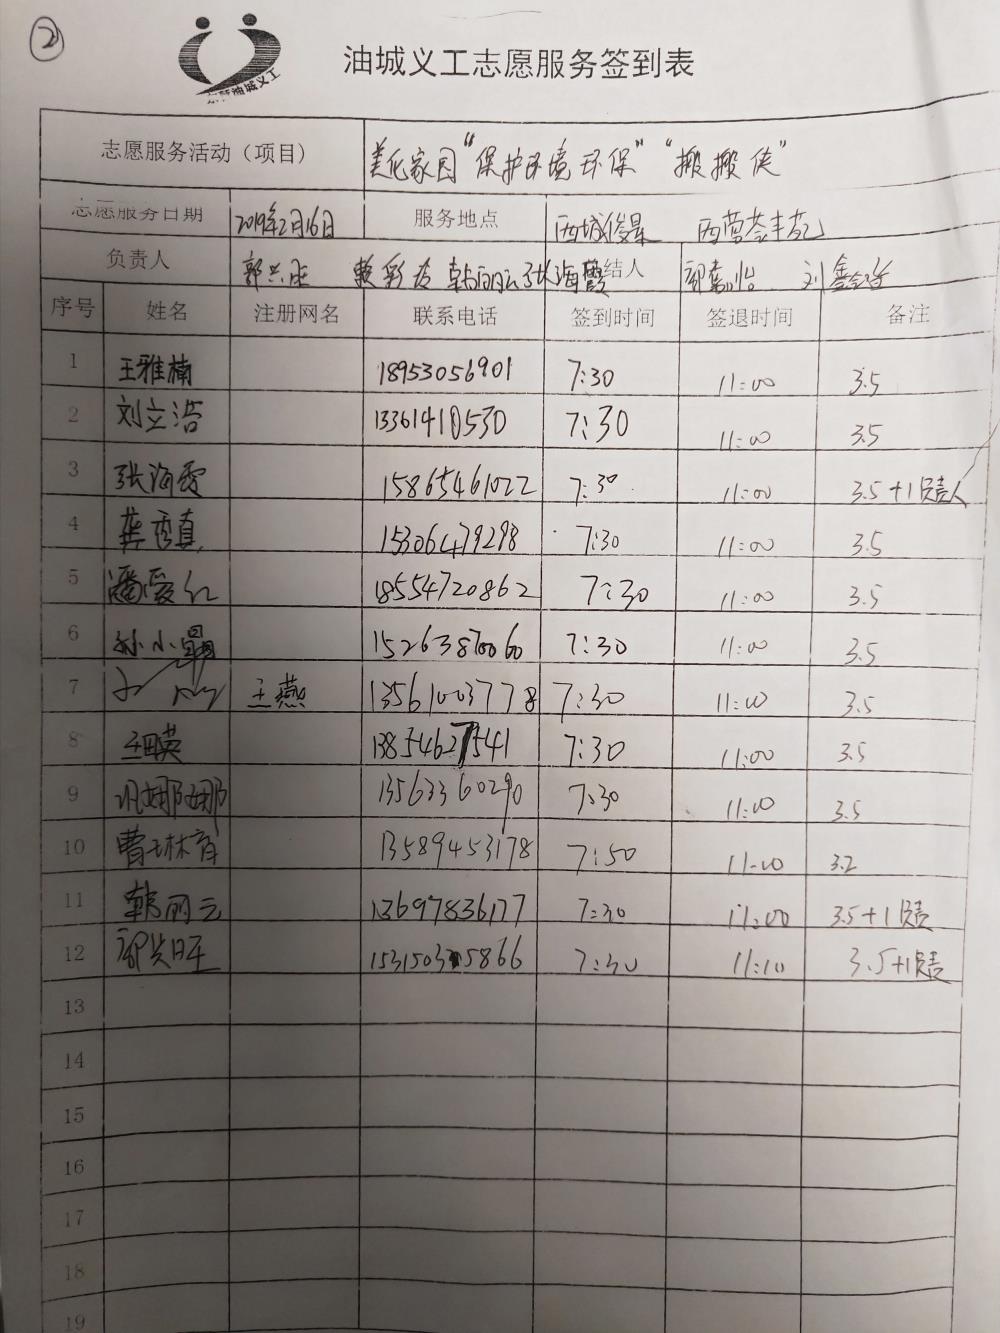 ②
油城义工志愿服务签到表
志愿服务活动（项目） 美化家园“保护环境 环保”“搬搬侠”
志愿服务日期 2019年2月16日 服务地点 西城俊景
负责人 韩丽云 张海霞 结人
序号 姓名 注册网名 联系电话 签到时间 签退时间 备注
1 王雅楠 18953056901 7:30 11:00 3.5
2 刘立浩 13361410530 7:30 11:00 3.5
3 张海霞 15865461022 7:30 11:00 3.5+1负责人
4 龚秀真 15306479298 7:30 11:00 3.5
5 潘爱红 18554720862 7:30 11:00 3.5
6 孙小 15263870060 7:30 11:00 3.5
7 王燕 13561003778 7:30 11:00 3.5
8 13854627541 7:30 11:00 3.5
9 巩娜娜 13563360290 7:30 11:00 3.5
10 曹 13589453178 7:50 11:00 3.2
11 韩丽云 13697836177 7:30 11:00 3.5+1负责
12 5866 7:30 11:10 3.5+1负责
13
14
15
16
17
18
19